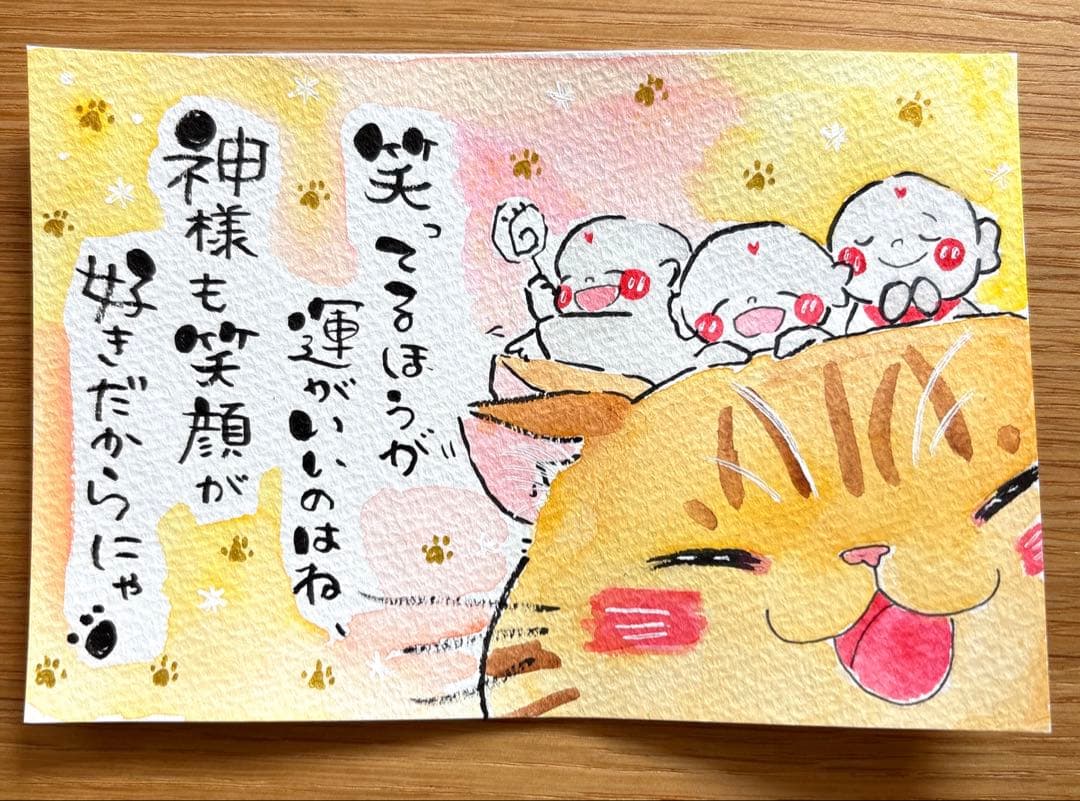 笑ってるほうが
運がいいのはね、
神様も笑顔が
好きだからにゃ